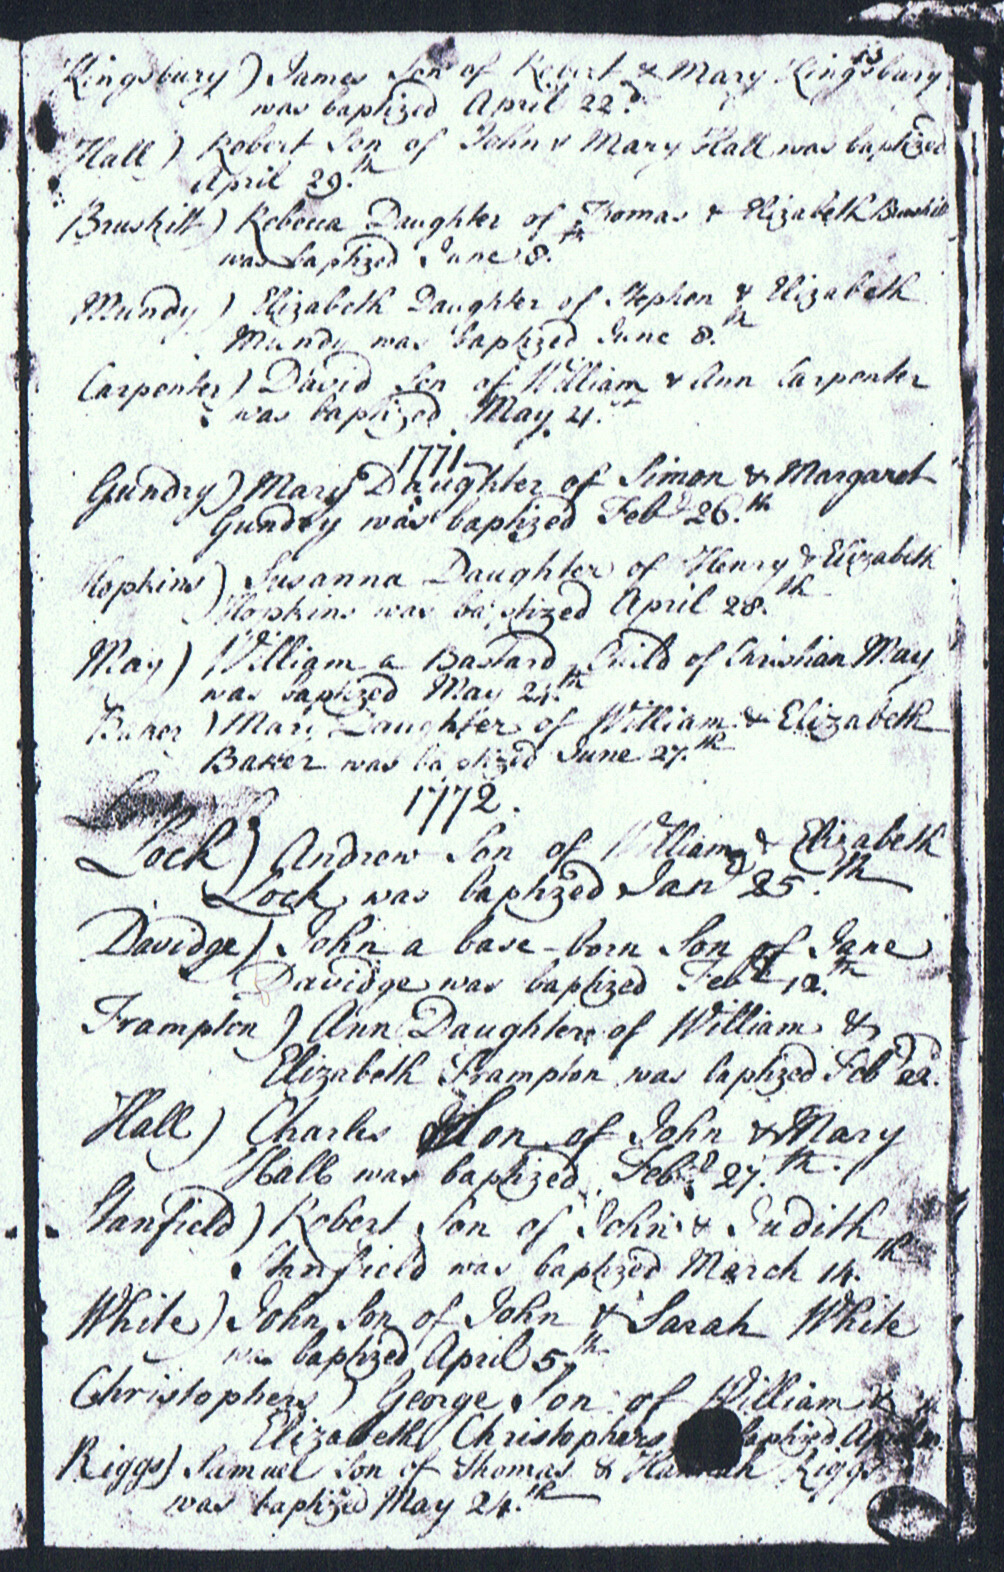 13
Kingsbury) James Son of Robert & Mary Kingsbury
was baptized April 22.d
Hall) Robert Son of John & Mary Hall was baptized
April 29.th
Bruskitt) Rebecca Daughter of Thomas & Elizabeth Bruskitt
was baptized June 8.th
Mundy) Elizabeth Daughter of Stephen & Elizabeth
Mundy was baptized June 8.th
Carpenter) David Son of William & Ann Carpenter
was baptized May 21.st
1771
Gundry) Mary Daughter of Simon & Margaret
Gundry was baptized Feb.y 26.th
Hopkins) Susanna Daughter of Henry & Elizabeth
Hopkins was baptized April 28.th
May) William a Bastard Child of Christian May
was baptized May 24.th
Baker) Mary Daughter of William & Elizabeth
Baker was baptized June 27.th
1772.
Lock) Andrew Son of William & Elizabeth
Lock was baptized Jan.y 25.th
Davidge) John a base-born Son of Jane
Davidge was baptized Feb.y 12.th
Frampton) Ann Daughter of William &
Elizabeth Frampton was baptized Feb.y 22.d
Hall) Charles Son of John & Mary
Hall was baptized Feb.y 27.th
Stanfield) Robert Son of John & Judith
Stanfield was baptized March 14.th
White) John Son of John & Sarah White
was baptized April 5.th
Christophers) George Son of William &
Elizabeth Christophers baptized April
Riggs) Samuel Son of Thomas & Hannah Riggs
was baptized May 24.th